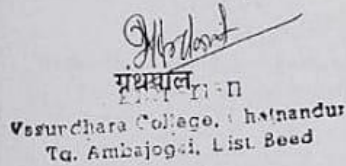 ग्रंथपाल
Vasundhara College, Ghatnandur
Tq. Ambajogai, Dist. Beed